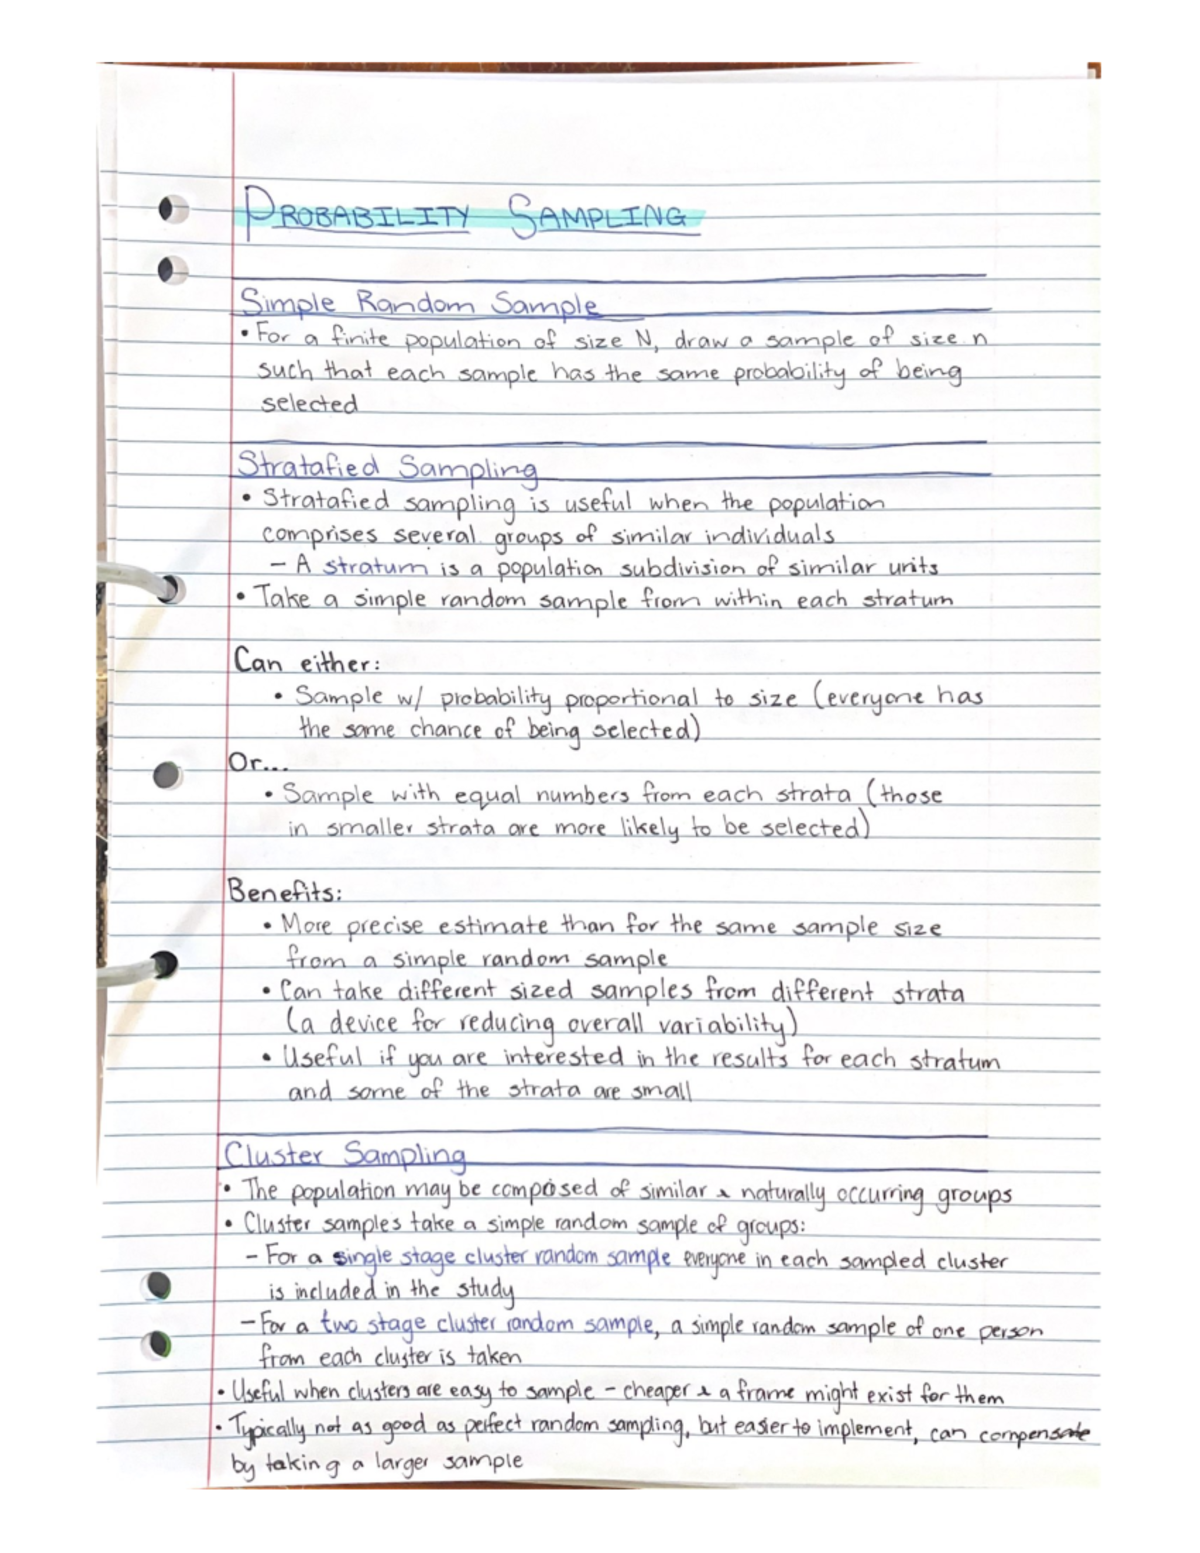 PROBABILITY SAMPLING
Simple Random Sample
• For a finite population of size N, draw a sample of size n
such that each sample has the same probability of being
selected
Stratafied Sampling
• Stratafied sampling is useful when the population
comprises several groups of similar individuals
– A stratum is a population subdivision of similar units
• Take a simple random sample from within each stratum
Can either:
• Sample w/ probability proportional to size (everyone has
the same chance of being selected)
Or...
• Sample with equal numbers from each strata (those
in smaller strata are more likely to be selected)
Benefits:
• More precise estimate than for the same sample size
from a simple random sample
• Can take different sized samples from different strata
(a device for reducing overall variability)
• Useful if you are interested in the results for each stratum
and some of the strata are small
Cluster Sampling
• The population may be composed of similar & naturally occurring groups
• Cluster samples take a simple random sample of groups:
– For a single stage cluster random sample everyone in each sampled cluster
is included in the study
– For a two stage cluster random sample, a simple random sample of one person
from each cluster is taken
• Useful when clusters are easy to sample – cheaper & a frame might exist for them
• Typically not as good as perfect random sampling, but easier to implement, can compensate
by taking a larger sample